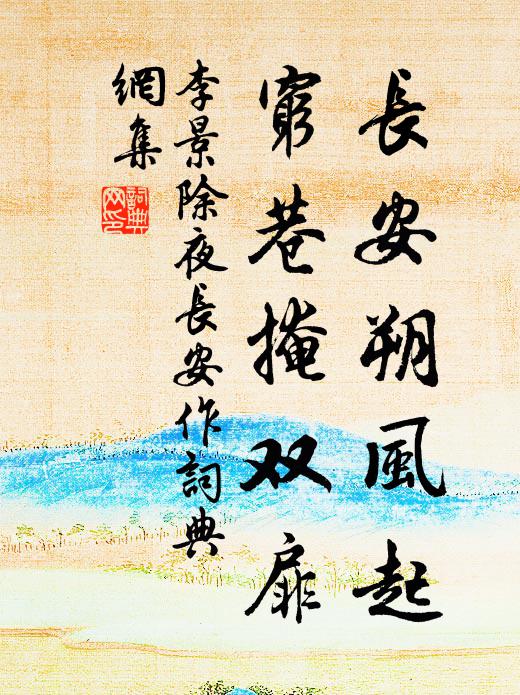 長安朔風起
窮巷掩双扉
李景除夜長安作詞典
網集
詞典
网印